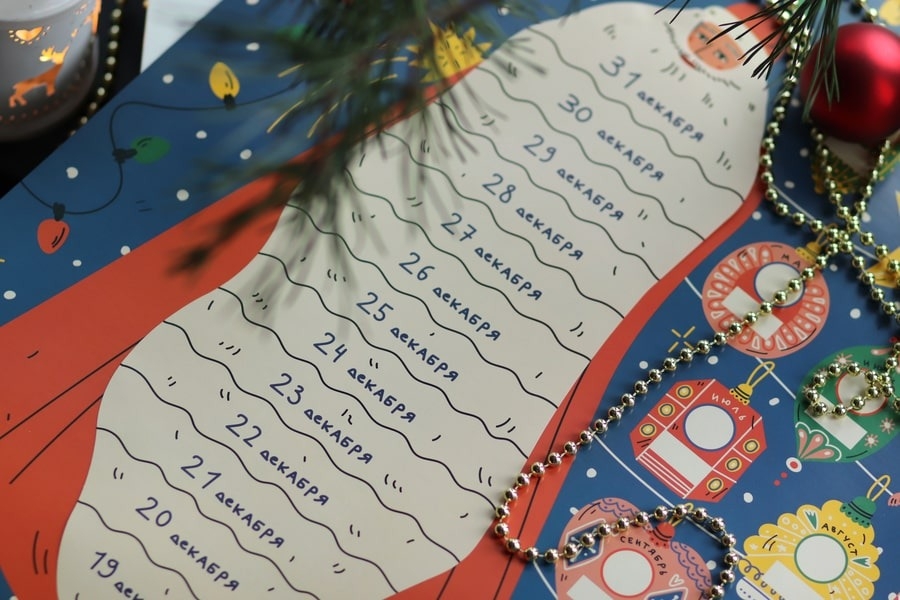 31 декабря
30 декабря
29 декабря
28 декабря
27 декабря
26 декабря
25 декабря
24 декабря
23 декабря
22 декабря
21 декабря
20 декабря
19 дек
июль
август
сентябрь